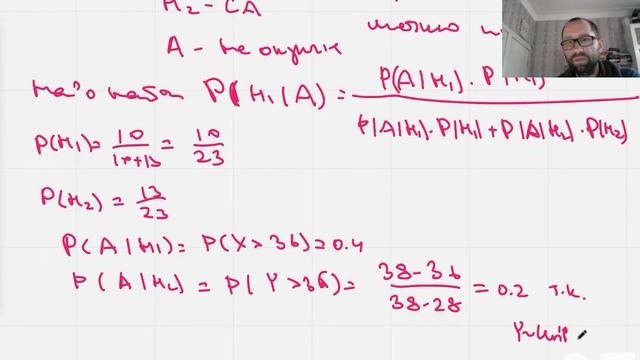 H₂ - CA
можно
A - не окупил
P(H₁|A) = P(A|H₁) · P(H₁) / P(A|H₁) · P(H₁) + P(A|H₂) · P(H₂)
P(H₁) = 10/10+13 = 10/23
P(H₂) = 13/23
P(A|H₁) = P(X > 36) = 0.4
P(A|H₂) = P(Y > 36) = 38-36/38-28 = 0.2 т.к.